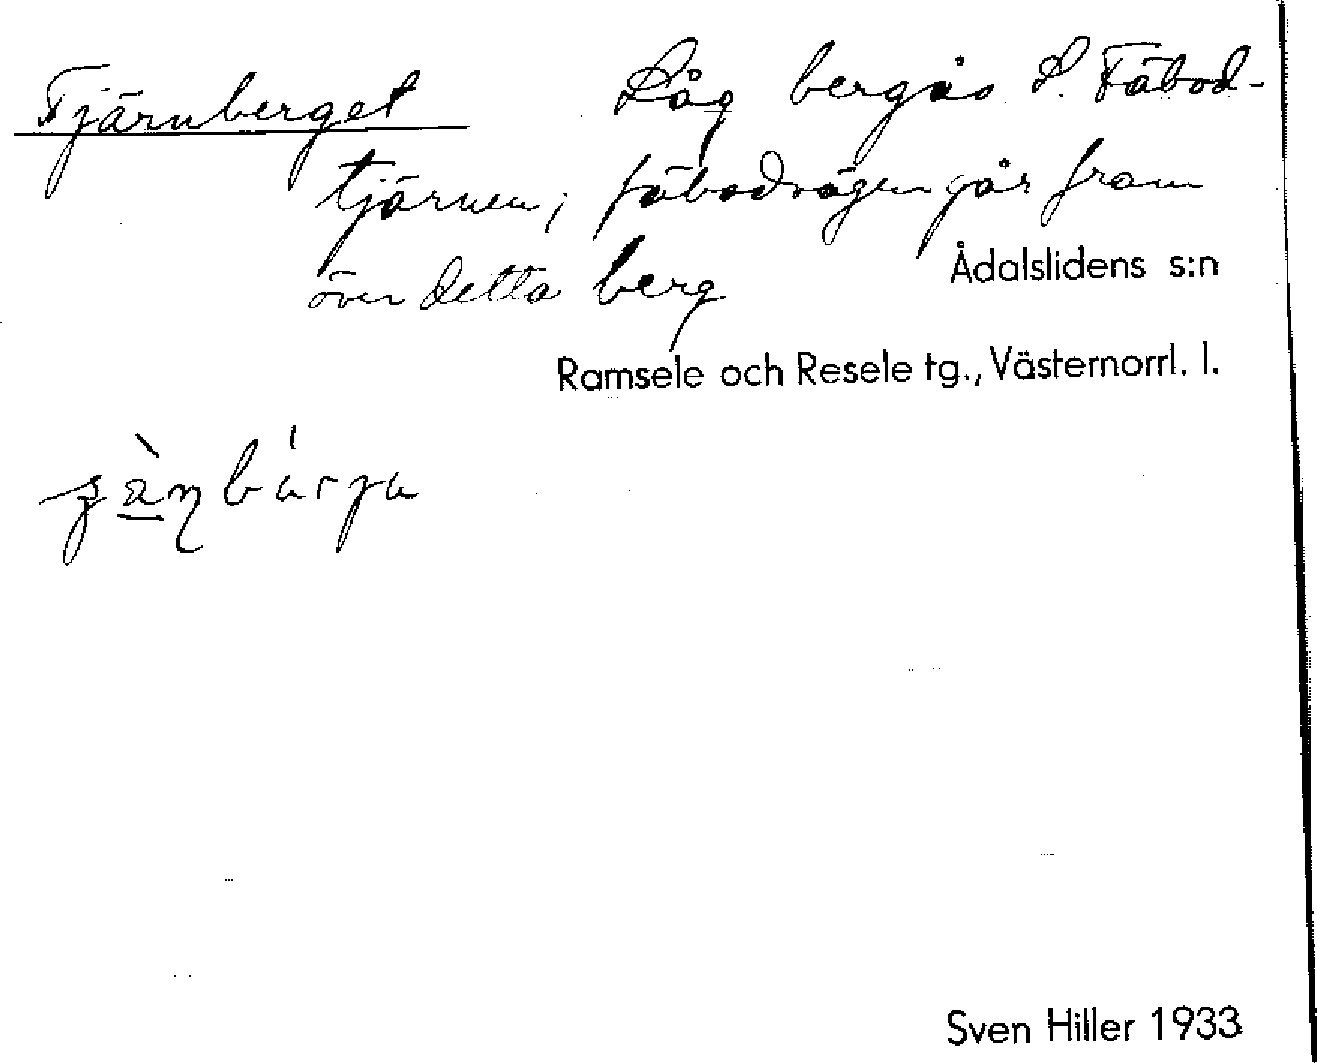 Tjärnberget Låg bergås S. Fäbod-
tjärnen; fäbodvägen går fram
över detta berg
Ådalslidens s:n
Ramsele och Resele tg., Västernorrl. l.
Sven Hiller 1933